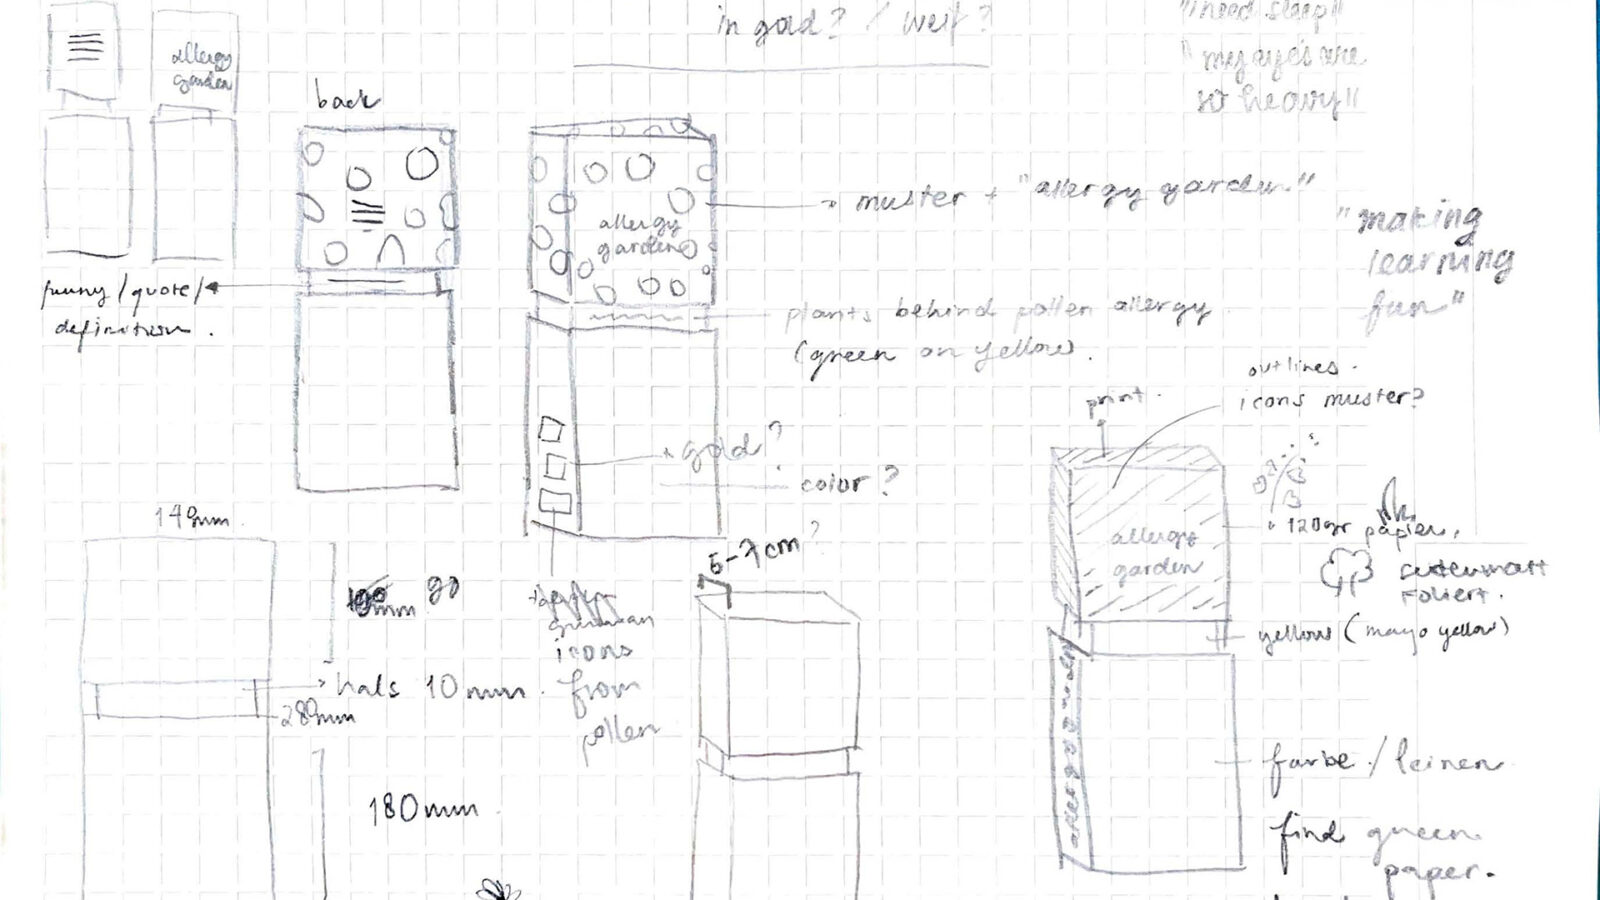 in gold? / weiß?
"i need sleep"
"my eyes are
so heavy"
allergy
garden
back
muster + "allergy garden"
allergy
garden
"making
learning
fun"
funny/quote/
definition.
plants behind pollen allergy
(green on yellow).
outlines.
icons muster?
print.
gold?
color?
allergy
garden
120gr papier,
seidenmatt
foliert.
yellow (mayo yellow)
149mm
5-7cm?
90
mm
hals 10mm.
280mm
icons
from
pollen
180mm
farbe / leinen
find green
paper.